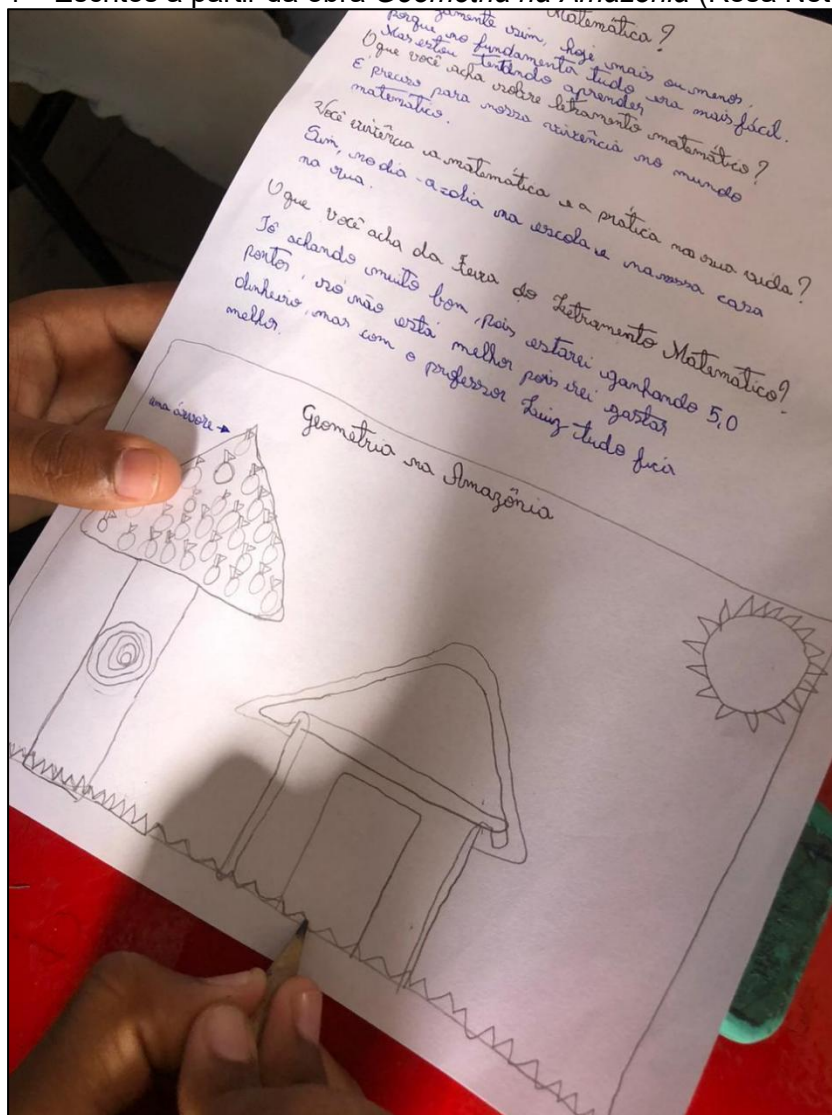 Escritos a partir da obra Geometria na Amazônia (Rosa Net
Matemática?
amente sim, hoje mais ou menos,
porque no fundamento tudo era mais fácil.
Mas estou tentando aprender
O que você acha sobre letramento matemático?
É preciso para nossa vivência no mundo
matemático.
Você vivência a matemática e a prática na sua vida?
Sim, no dia-a-dia na escola e na nossa casa
na rua.
O que você acha da Feira do Letramento Matemático?
Tô achando muito bom, pois estarei ganhando 5,0
pontos, só não está melhor pois irei gastar
dinheiro, mas com o professor Luiz tudo fica
melhor.
uma árvore →
Geometria na Amazônia